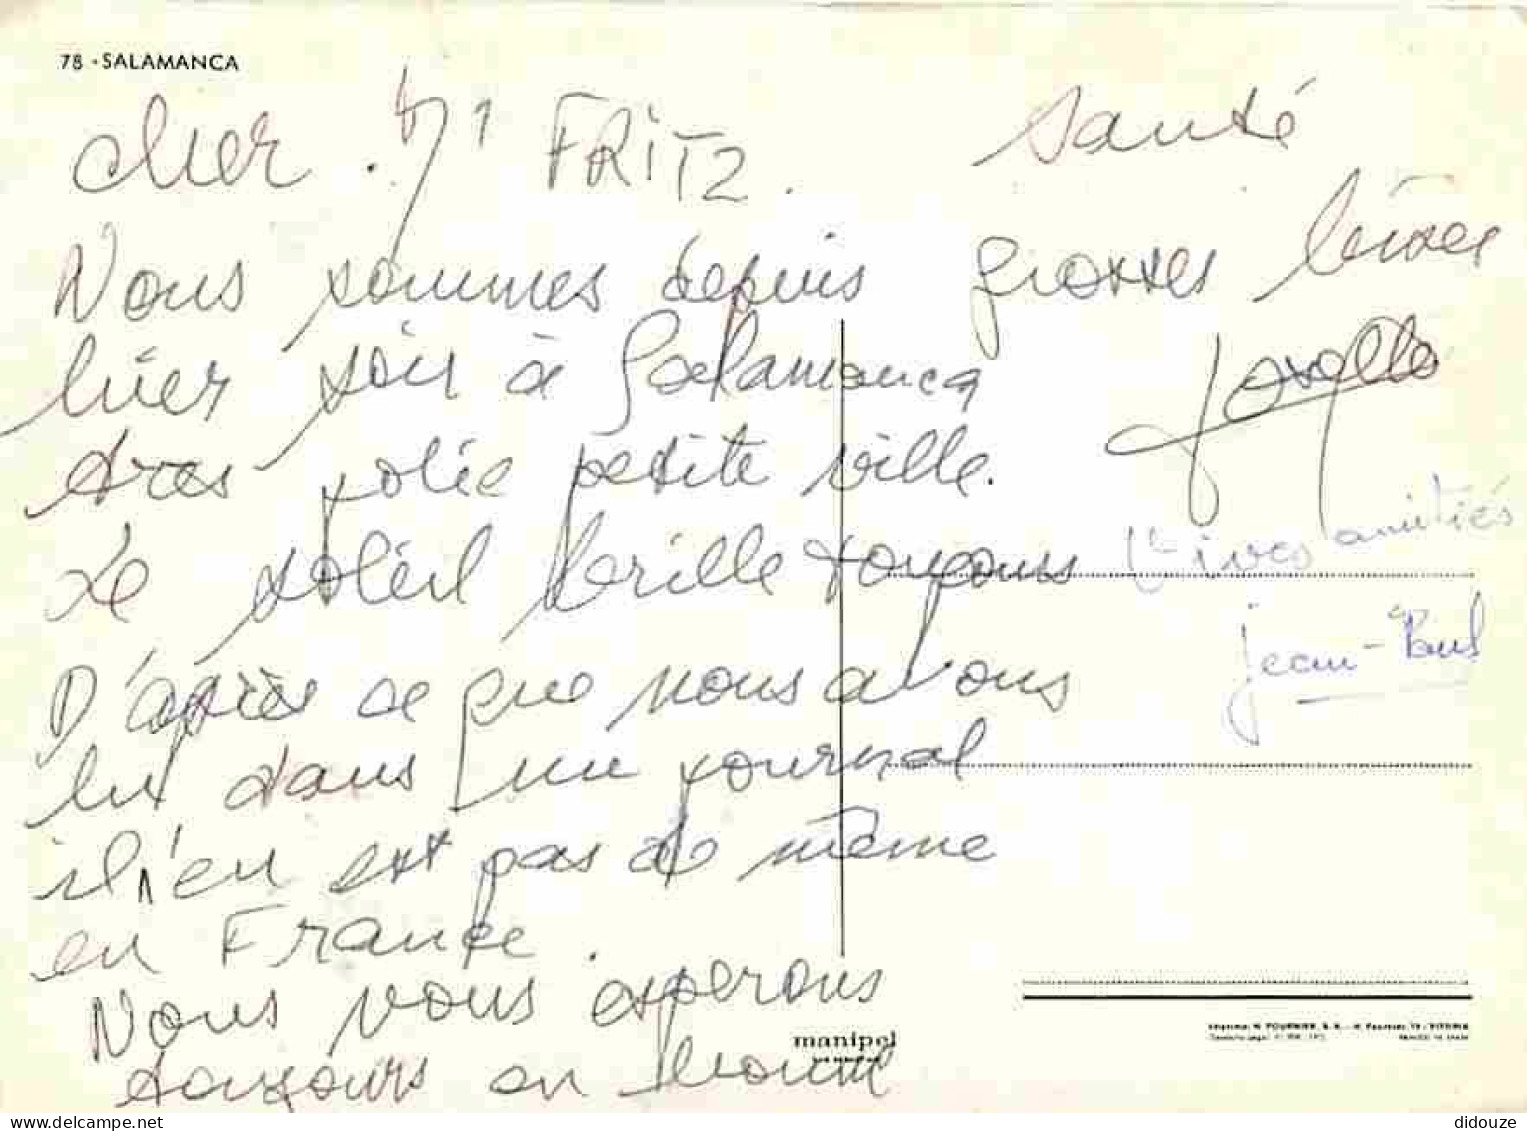 78 - SALAMANCA
Cher FRITZ.
Nous sommes depuis
hier soir à Salamanca
tres jolie petite ville.
Le soleil brille toujours
D'après ce que nous avons
lu dans un journal
il n'en est pas de même
en France.
Nous vous esperons
toujours en bonne
santé
grosses bises
Vives amitiés
Jean-Paul
manipel
Imprime: H. FOURNIER, S. A. - VITORIA
didouze